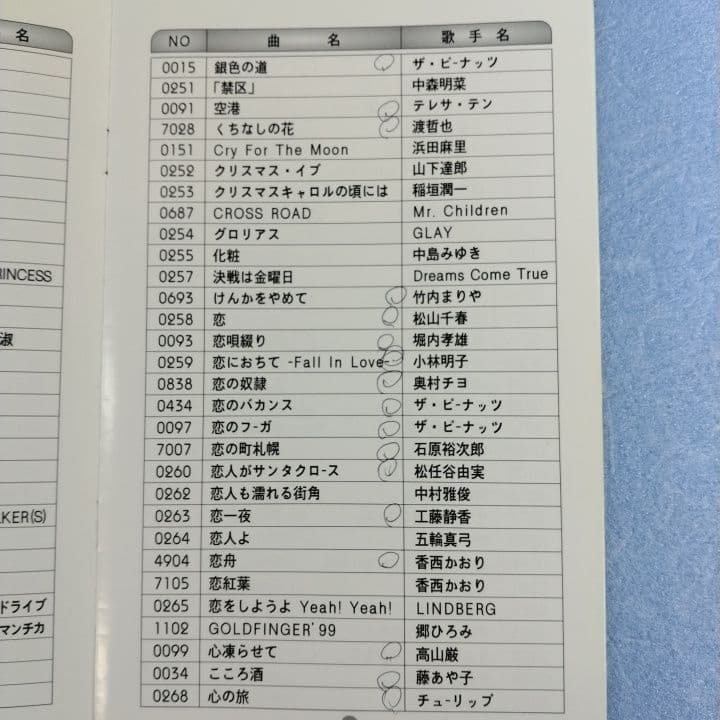 名
RINCESS
淑
LKER(S)
ドライブ
マンチカ
NO 曲 名 歌 手 名
0015 銀色の道 ザ・ピ-ナッツ
0251 「禁区」 中森明菜
0091 空港 テレサ・テン
7028 くちなしの花 渡哲也
0151 Cry For The Moon 浜田麻里
0252 クリスマス・イブ 山下達郎
0253 クリスマスキャロルの頃には 稲垣潤一
0687 CROSS ROAD Mr. Children
0254 グロリアス GLAY
0255 化粧 中島みゆき
0257 決戦は金曜日 Dreams Come True
0693 けんかをやめて 竹内まりや
0258 恋 松山千春
0093 恋唄綴り 堀内孝雄
0259 恋におちて -Fall In Love- 小林明子
0838 恋の奴隷 奥村チヨ
0434 恋のバカンス ザ・ピ-ナッツ
0097 恋のフ-ガ ザ・ピ-ナッツ
7007 恋の町札幌 石原裕次郎
0260 恋人がサンタクロ-ス 松任谷由実
0262 恋人も濡れる街角 中村雅俊
0263 恋一夜 工藤静香
0264 恋人よ 五輪真弓
4904 恋舟 香西かおり
7105 恋紅葉 香西かおり
0265 恋をしようよ Yeah! Yeah! LINDBERG
1102 GOLDFINGER'99 郷ひろみ
0099 心凍らせて 高山厳
0034 こころ酒 藤あや子
0268 心の旅 チュ-リップ